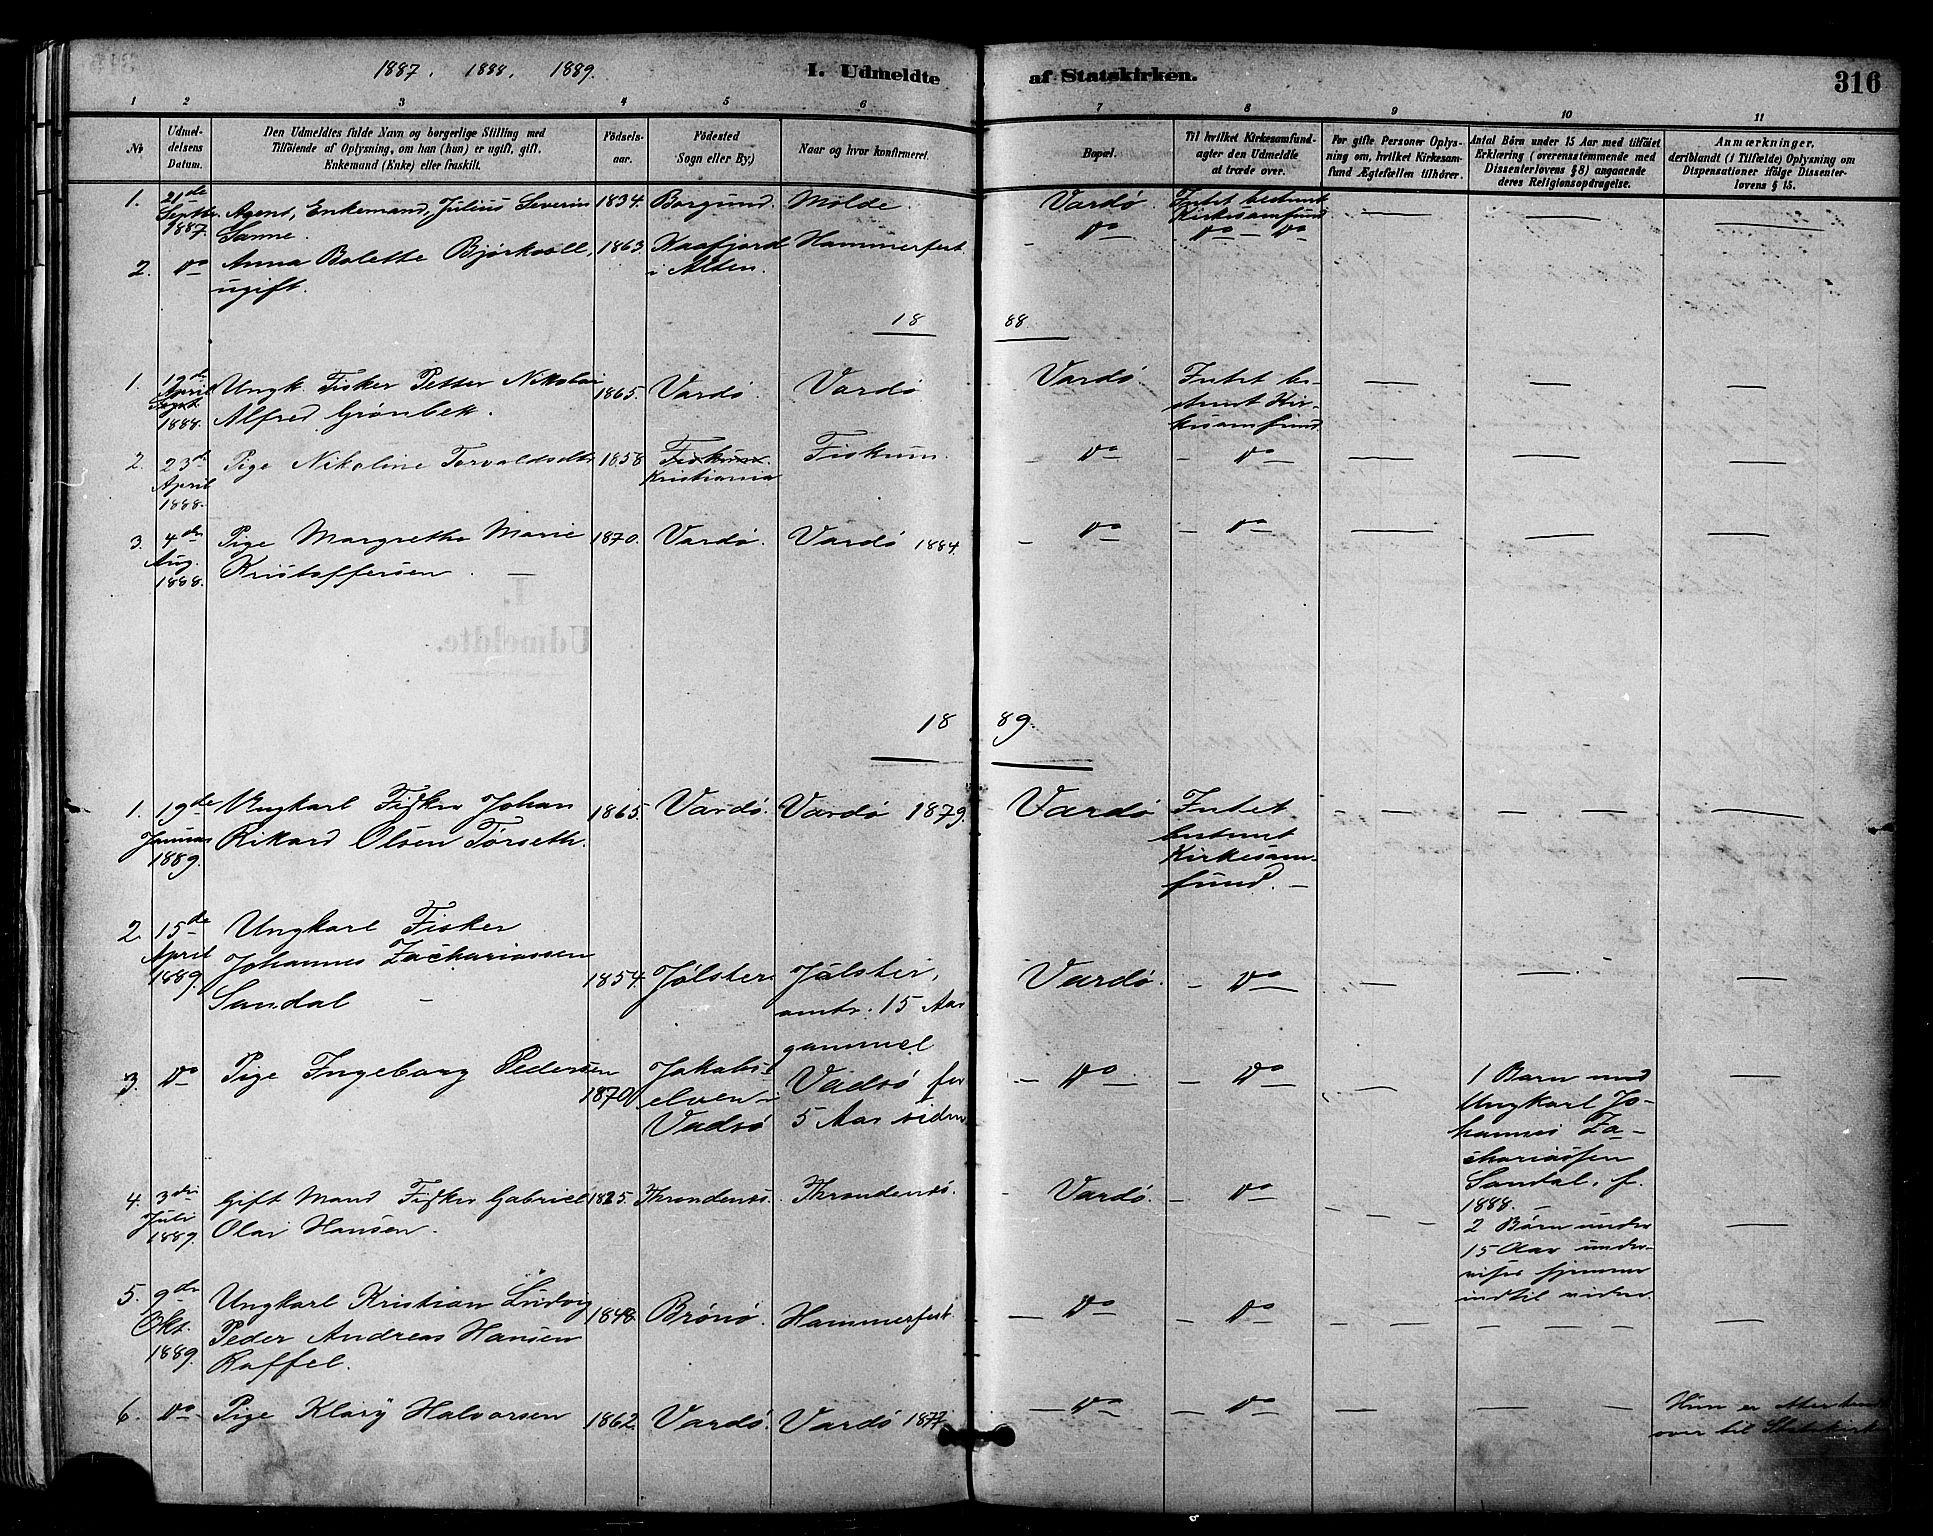 1887. 1888. 1889.
I. Udmeldte af Statskirken.
316
1 2 3 4 5 6 7 8 9 10 11
No
Udmel-
delsens
Datum.
Den Udmeldtes fulde Navn og borgerlige Stilling med
Tilføiende af Oplysning, om han (hun) er ugift, gift,
Enkemand (Enke) eller fraskilt.
Fødsels-
aar.
Fødested
(Sogn eller By.)
Naar og hvor konfirmeret.
Bopæl.
Til hvilket Kirkesamfund
agter den Udmeldte
at træde over.
For gifte Personer Oplys-
ning om, hvilket Kirkesam-
fund Ægtefællen tilhører.
Antal Børn under 15 Aar med tilføiet
Erklæring (overensstemmende med
Dissenterlovens § 8) angaaende
deres Religionsopdragelse.
Anmærkninger,
deriblandt (i Tilfælde) Oplysning om
Dispensationer ifølge Dissenter-
lovens § 15.
1. 21de Septbr. 1887. Agent, Enkemand, Julius Severin 1834. Borgund. Molde. Vardø. Intet bestemt
Sanne. Kirkesamfund
2. Do Anna Bolette Bjørkvoll, 1863. Kaafjord Hammerfest. – Do – Do – Do
ugift. i Alten.
1888.
1. 19de April 1888. Ungk. Fisker Petter Nikolai 1865. Vardø. Vardø Vardø Intet be-
Alfred Grønbek. stemt Kir-
kesamfund.
2. 23de April 1888. Pige Nikoline Torvaldsdtr. 1858 Fiskum. Fiskum. – Do – Do
Kristiania
3. 4de Aug. 1888. Pige Margrethe Marie 1870. Vardø. Vardø 1884. – Do – Do
Kristoffersen. –
I.
Udmeldte.
1889.
1. 19de Januar 1889. Ungkarl Fisker Johan 1865. Vardø. Vardø 1879. Vardø Intet
Rikard Olsen Torseth. bestemt
Kirkesam-
fund. –
2. 15de April 1889. Ungkarl Fisker
Johannes Zachariassen 1854. Jølster Jølster, Vardø. – Do –
Sandal – omtr. 15 Aar
gammel
3. Do Pige Ingeborg Pedersen 1870 Jakobs- Vadsø for – Do – – Do – 1 Barn med
elven – 5 Aar siden Ungkarl Jo-
Vadsø hannes Za-
chariassen
Sandal, f.
1888. –
4. 3die Juli 1889. Gift Mand Fisker Gabriel 1825. Throndenæs. Throndenæs. Vardø. – Do –
Olai Hansen. 2 Børn under
15 Aar under-
vises hjemme
indtil videre.
5. 9de Okt. 1889. Ungkarl Kristian Ludvig 1848. Brønø. Hammerfest. – Do – – Do –
Peder Andreas Hansen
Roffel.
6. Do Pige Klary Halvorsen 1862. Vardø. Vardø 1877. – Do – – Do – Hun er
over til Statskirk